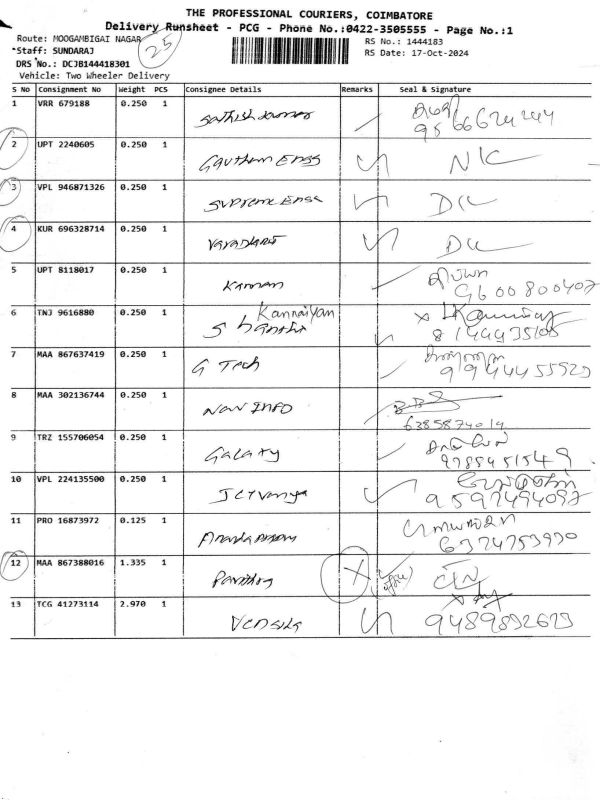 THE PROFESSIONAL COURIERS, COIMBATORE
Delivery Runsheet - PCG - Phone No.:0422-3505555 - Page No.:1
Route: MOOGAMBIGAI NAGAR
25
RS No.: 1444183
*Staff: SUNDARAJ
RS Date: 17-Oct-2024
DRS No.: DCJB144418301
Vehicle: Two Wheeler Delivery
S No Consignment No Weight PCS Consignee Details Remarks Seal & Signature
1 VRR 679188 0.250 1 Sathish Kumar
9566624244
2 UPT 2240605 0.250 1 Gautham Engg
3 VPL 946871326 0.250 1 Supreme Engg DL
4 KUR 696328714 0.250 1 DL
5 UPT 8118017 0.250 1 Kannan
9600800407
6 TNJ 9616880 0.250 1 Kannaiyan
7 MAA 867637419 0.250 1 G Tech
9944455529
8 MAA 302136744 0.250 1 Nav INFO
6385874014
9 TRZ 155706054 0.250 1 Galaxy
9788451549
10 VPL 224135500 0.250 1
9597494097
11 PRO 16873972 0.125 1
6374753970
12 MAA 867388016 1.335 1
13 TCG 41273114 2.970 1
9489892629